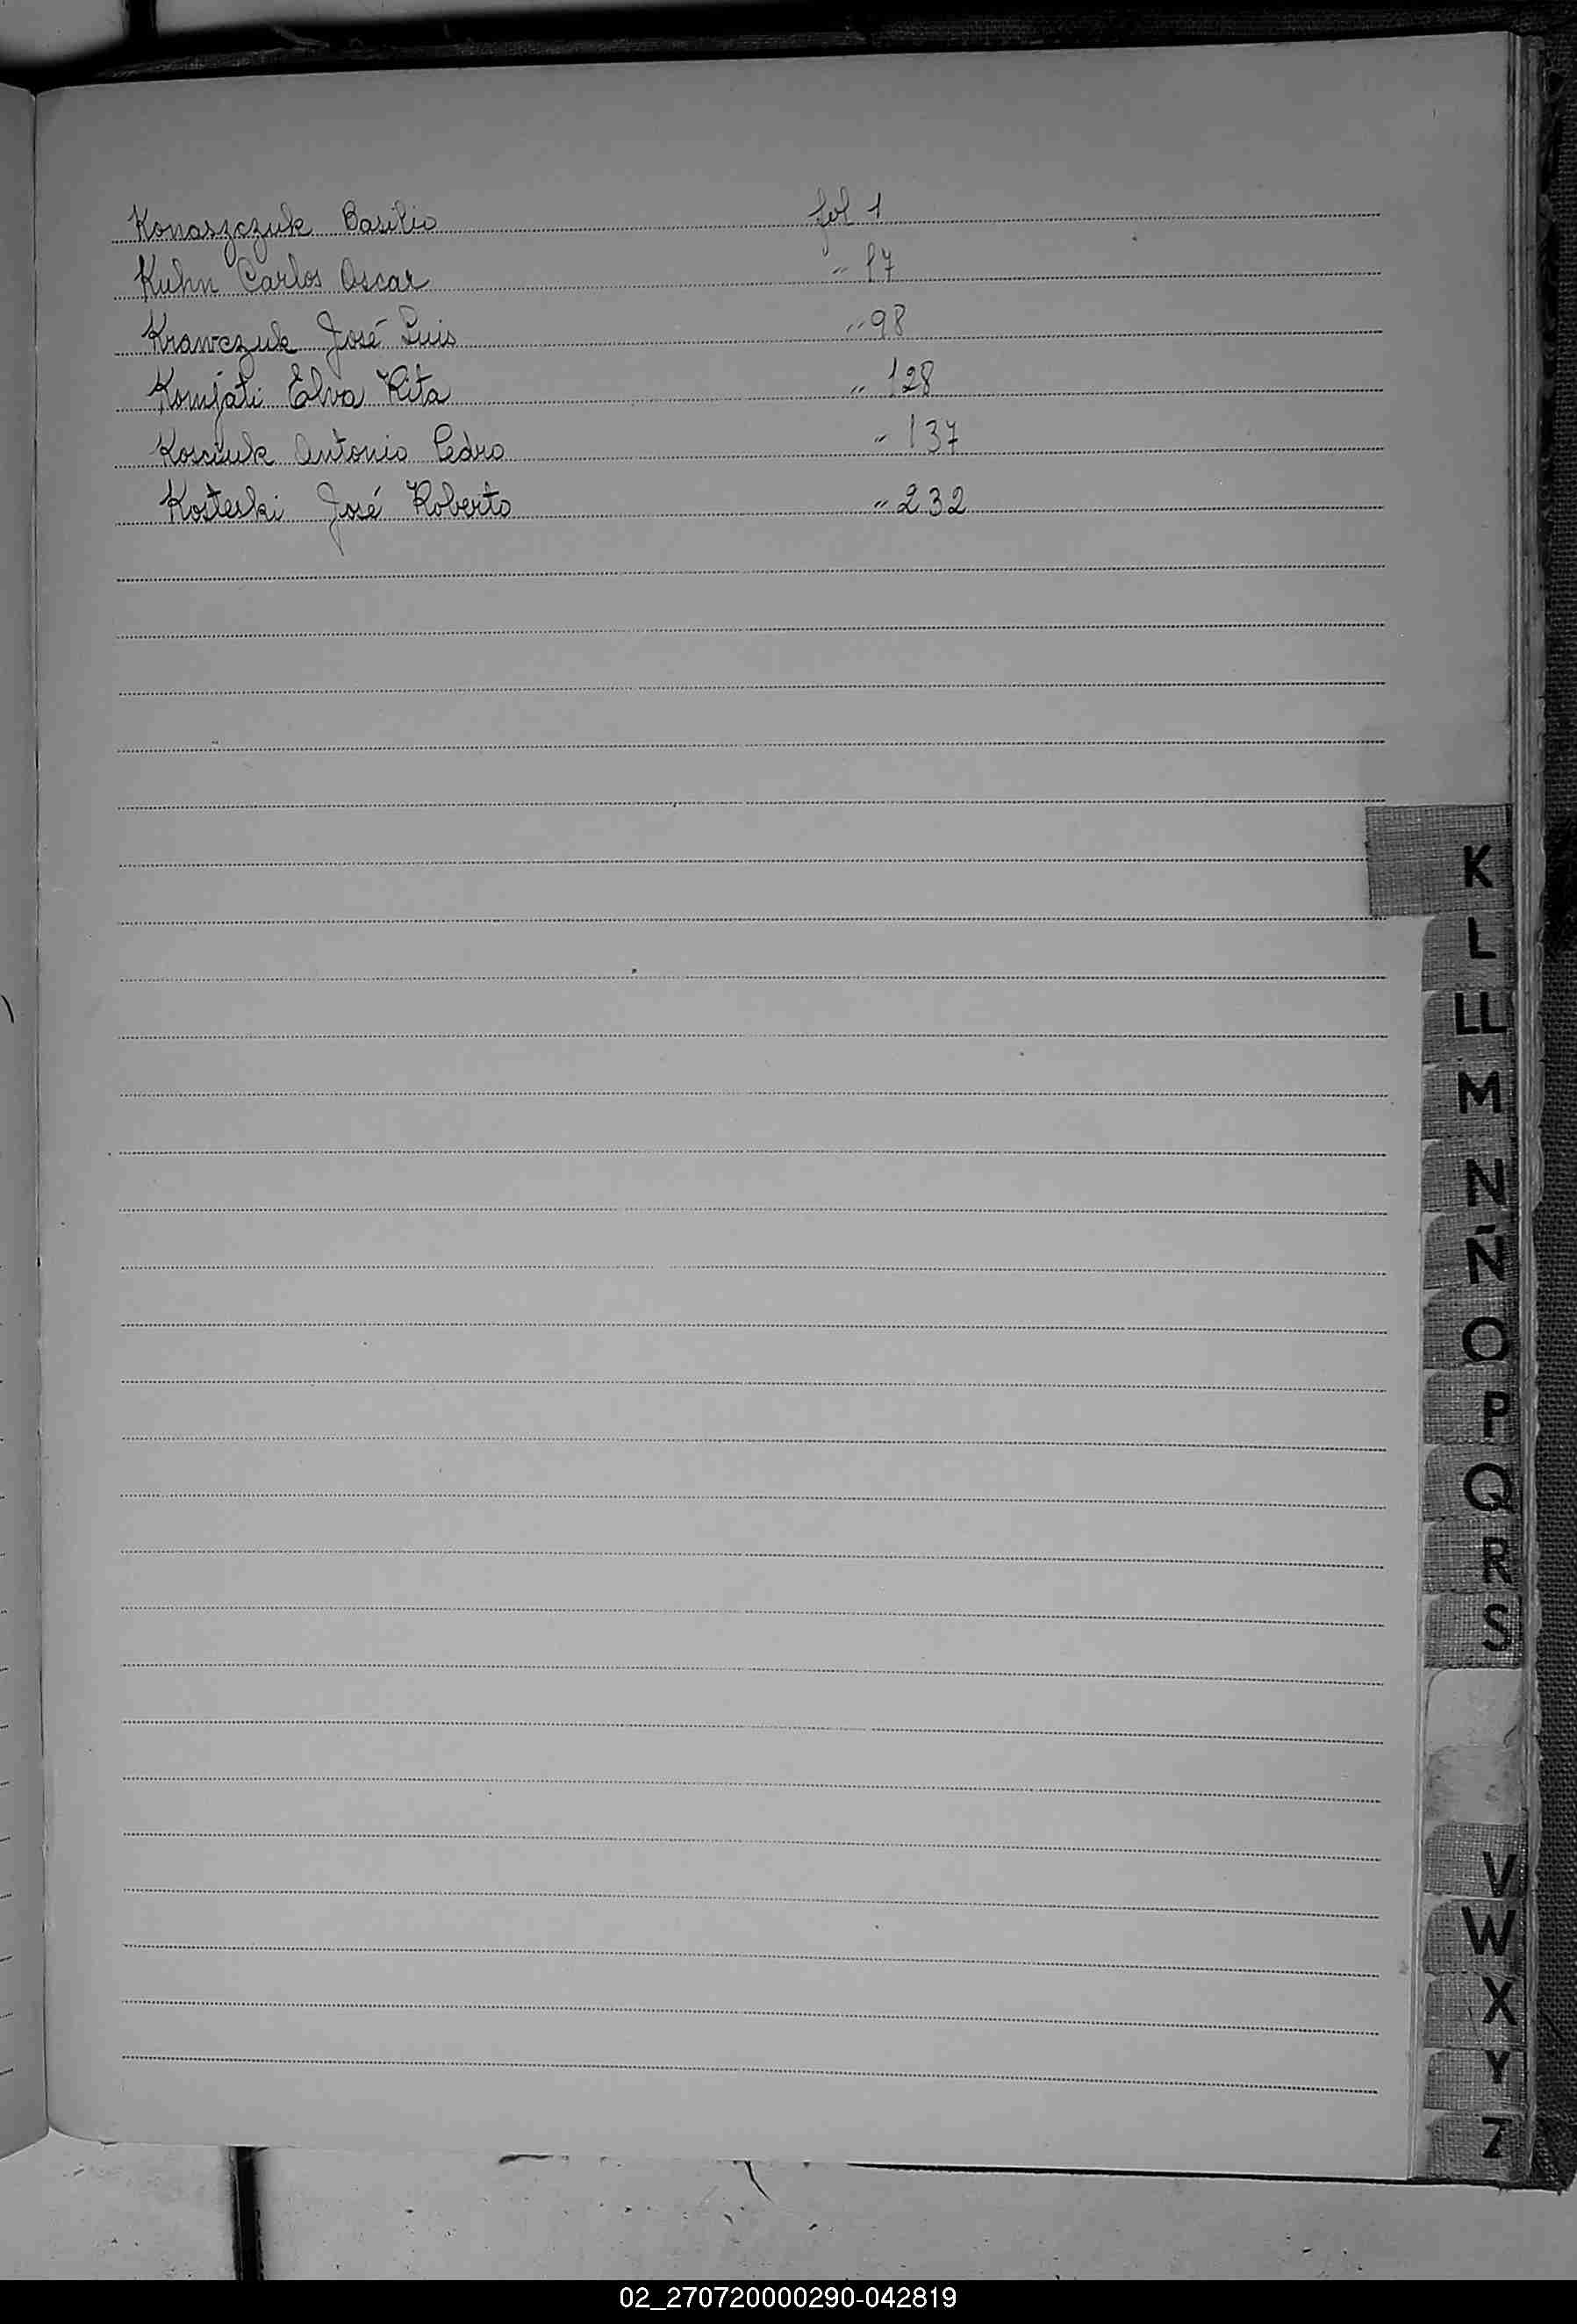 Konaszczuk Basilio fol 1
Kuhn Carlos Oscar " 17
Krawczuk José Luis " 98
Komjati Elva Rita " 128
Kosciuk Antonio Pedro " 137
Kosteski José Roberto " 232
K
L
LL
M
N
Ñ
O
P
Q
R
S
V
W
X
Y
Z
02_270720000290-042819